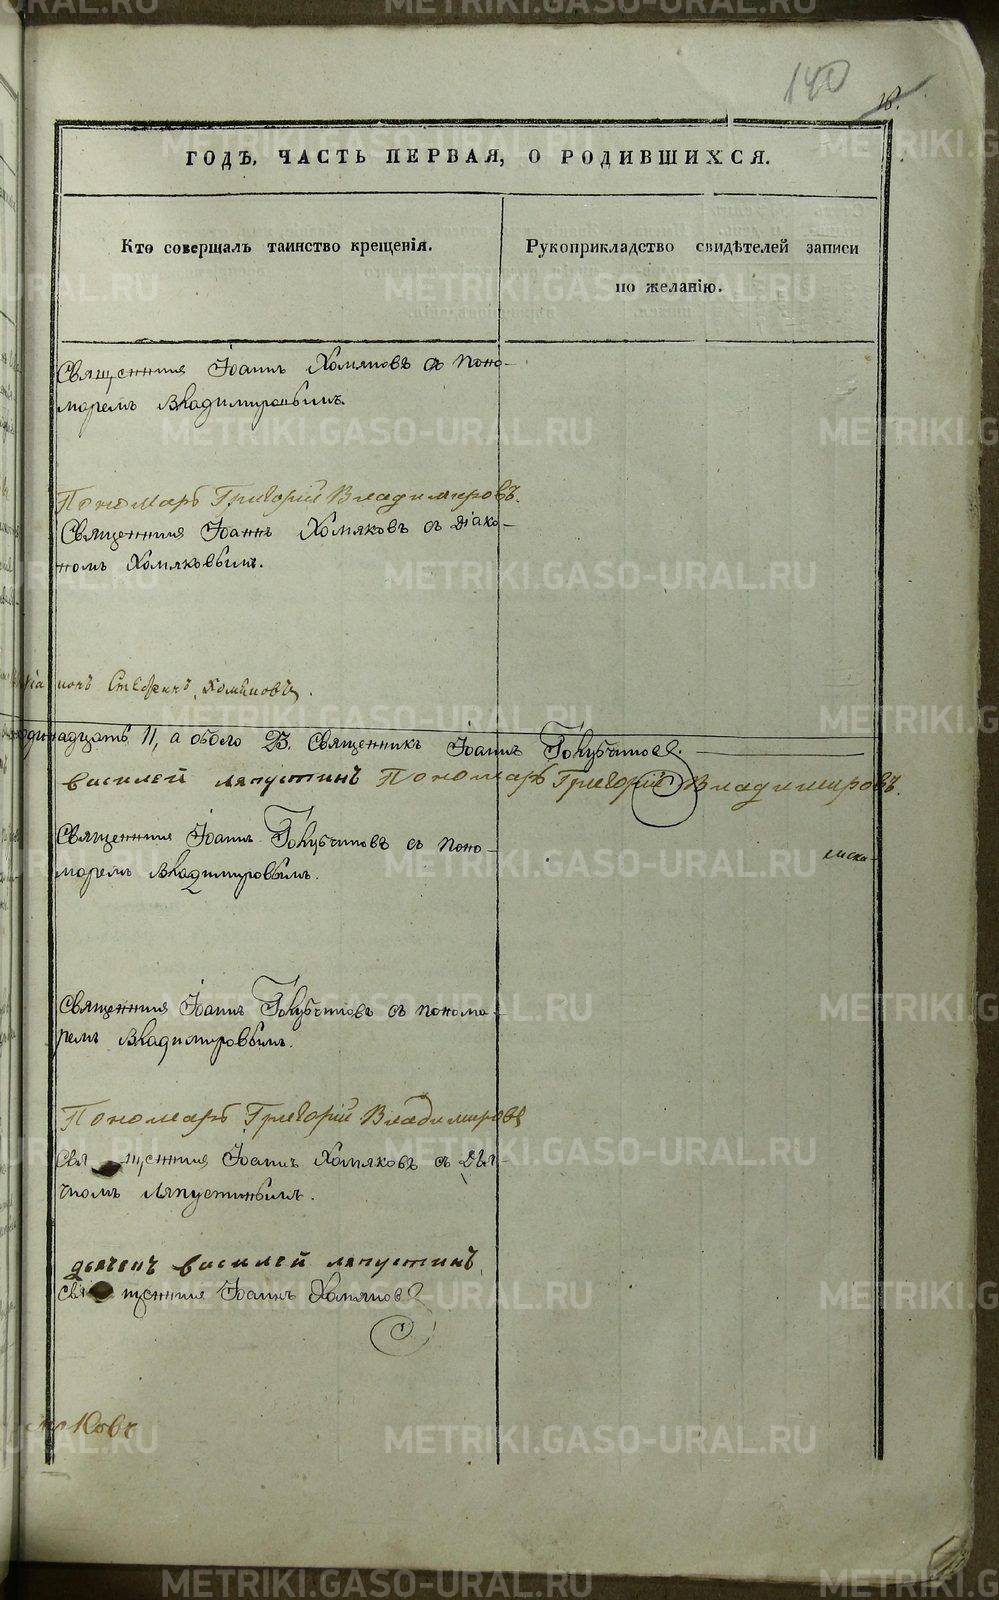 140
18.
ГОДЪ, ЧАСТЬ ПЕРВАЯ, О РОДИВШИХСЯ.
Кто совершалъ таинство крещенія.
Рукоприкладство свидѣтелей записи
по желанію.
Священникъ Іоаннъ Хомяковъ съ поно-
маремъ Владимировымъ.
Пономарь Григорій Владимировъ.
Священникъ Іоаннъ Хомяковъ съ діако-
номъ Хомяковымъ.
Стефанъ Хомяковъ.
одинадцать 11, а оболо 23. Священникъ Іоаннъ Голубчиковъ.
василей ляпустинъ Пономарь Григорій Владимировъ.
Священникъ Іоаннъ Голубчиковъ съ поно-
маремъ Владимировымъ.
Священникъ Іоаннъ Голубчиковъ съ понома-
ремъ Владимировымъ.
Пономарь Григорій Владимировъ
Священникъ Іоаннъ Хомяковъ съ дья-
чкомъ Ляпустинымъ.
дьячекъ василей ляпустинъ
священникъ Іоаннъ Хомяковъ
METRIKI.GASO-URAL.RU